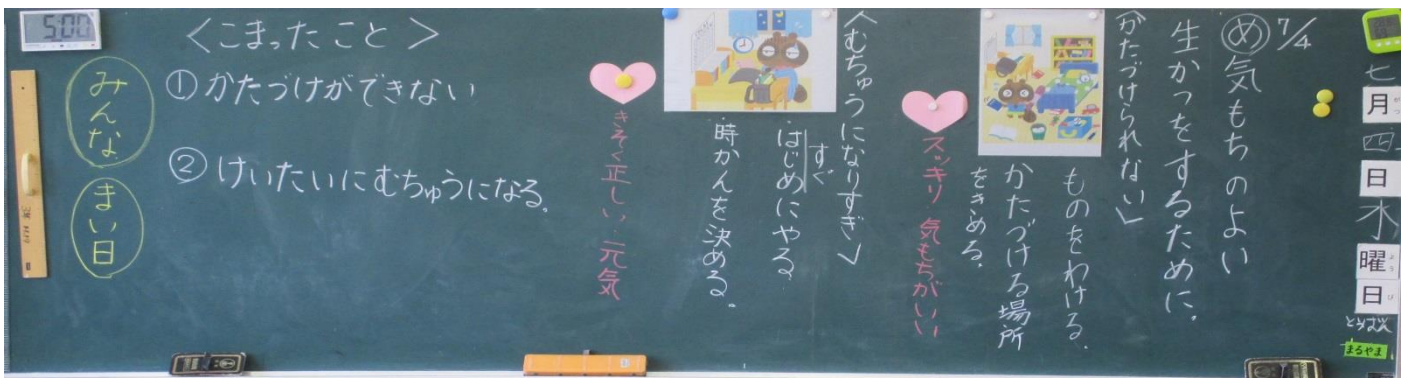 七
月
四
日
水
曜
よう
日
び
とうばん
まるやま
7/4
め 気もちのよい
生かつをするために。
〈かたづけられない〉
ものをわける。
かたづける場所
をきめる。
スッキリ 気もちがいい
〈むちゅうになりすぎ〉
すぐ
・はじめにやる
・時かんを決める。
きそく正しい・元気
〈こまったこと〉
①かたづけができない
②けいたいにむちゅうになる。
みんな
まい日
5:00